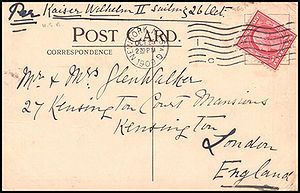 Per Kaiser Wilhelm II Sailing 26 Oct
POST CARD.
CORRESPONDENCE
Mr & Mrs Glen Walker
27 Kensington Court Mansions
Kensington
London
England